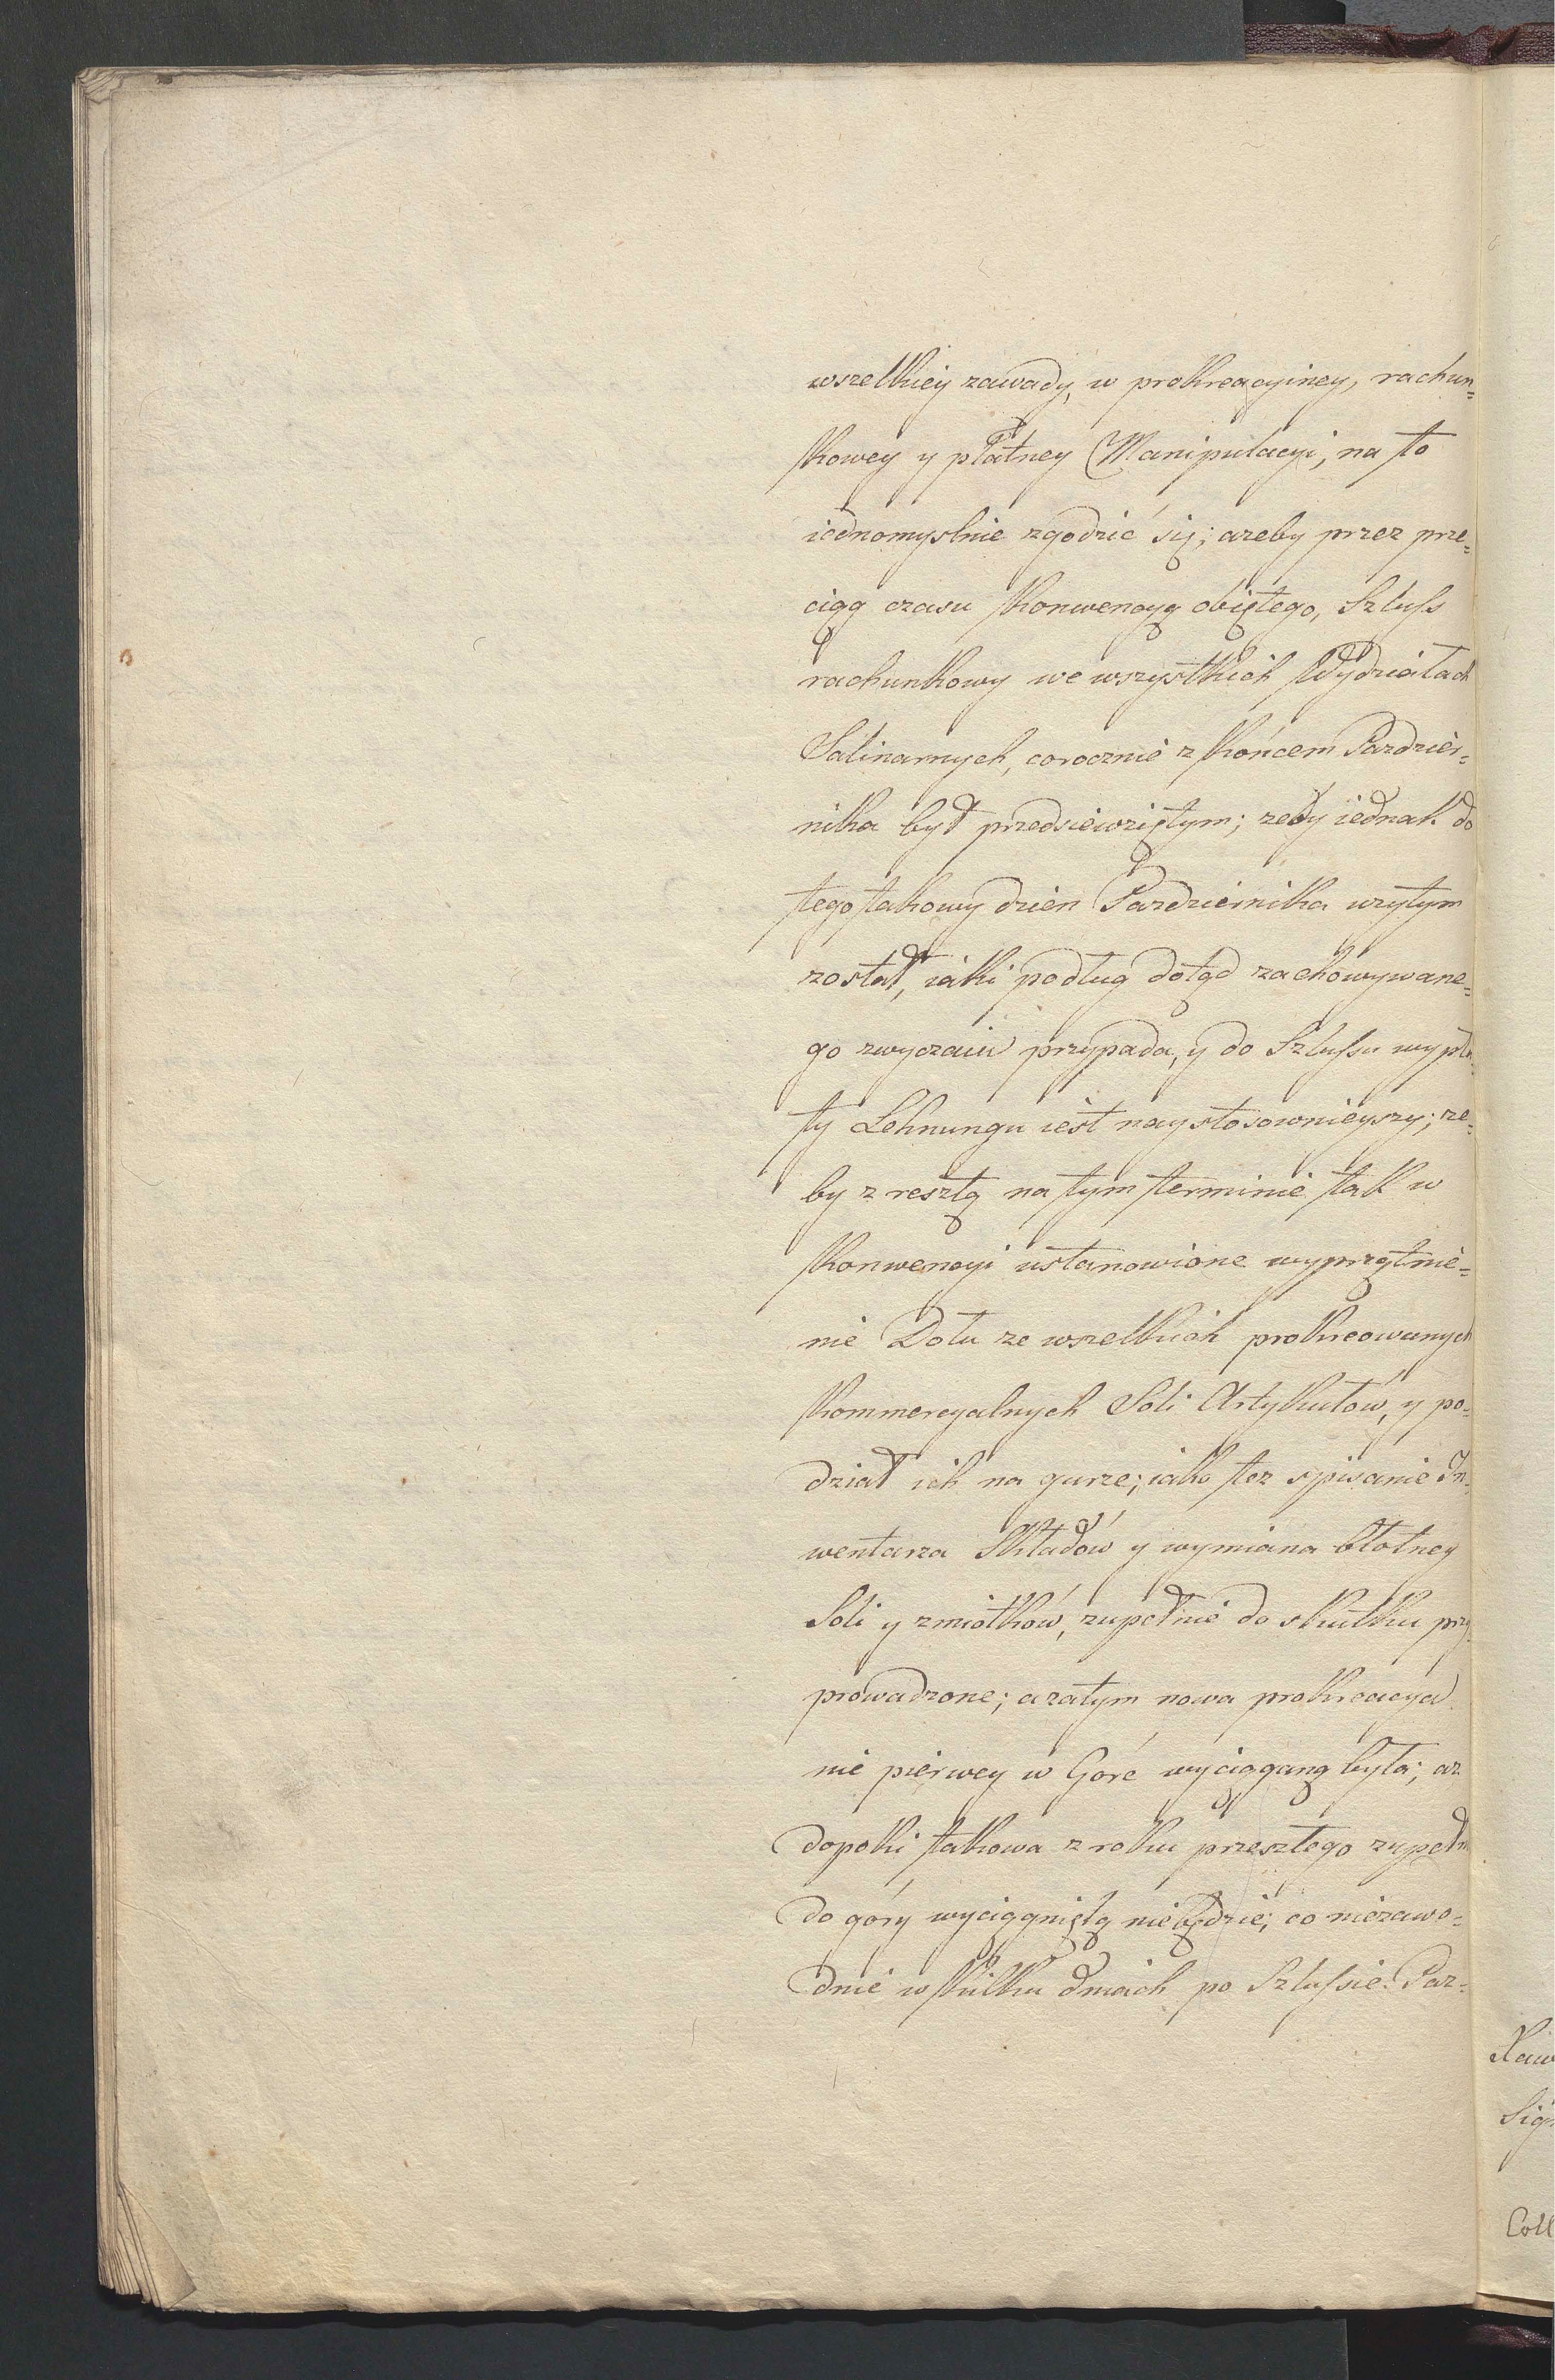 wszelkiey zawady, w prokreacyiney, rachun=
kowey y płatney Manipulacyi, na to
iednomyslnie zgodzić się; azeby przez prze=
ciąg czasu Konwencyą obiętego, Szluſs
rachunkowy we wszystkich Wydziałach
Salinarnych, corocznie z końcem Pazdzier=
nika był przedsiewziętym; zeby iednak do
tego takowy dzien Pazdziernika uzytym
został, iaki podług dotąd zachowywane=
go zwyczaiu przypada, y do Szluſsu wypła=
ty Lehnungu iest naystosownieyszy; ze=
by z resztą na tym terminie tak w
Konwencyi ustanowione wyprzątnie=
nie Dołu ze wszelkich prokreowanych
Kommercyalnych Soli Artykułow, y po=
dział ich na gurze; iako tez spisanie In=
wentarza Składów y wymiana błotney
Soli y zmiotków, zupełnie do skutku przy=
prowadzone; a zatym nowa prokreacya
nie pierwey w Górę wyciąganą była; az
dopoki takowa z roku przeszłego zupełn
do góry wyciągniętą niebędzie; co niezawo=
dnie w kilku dniach po Szluſsie Paz=
Sig
Coll